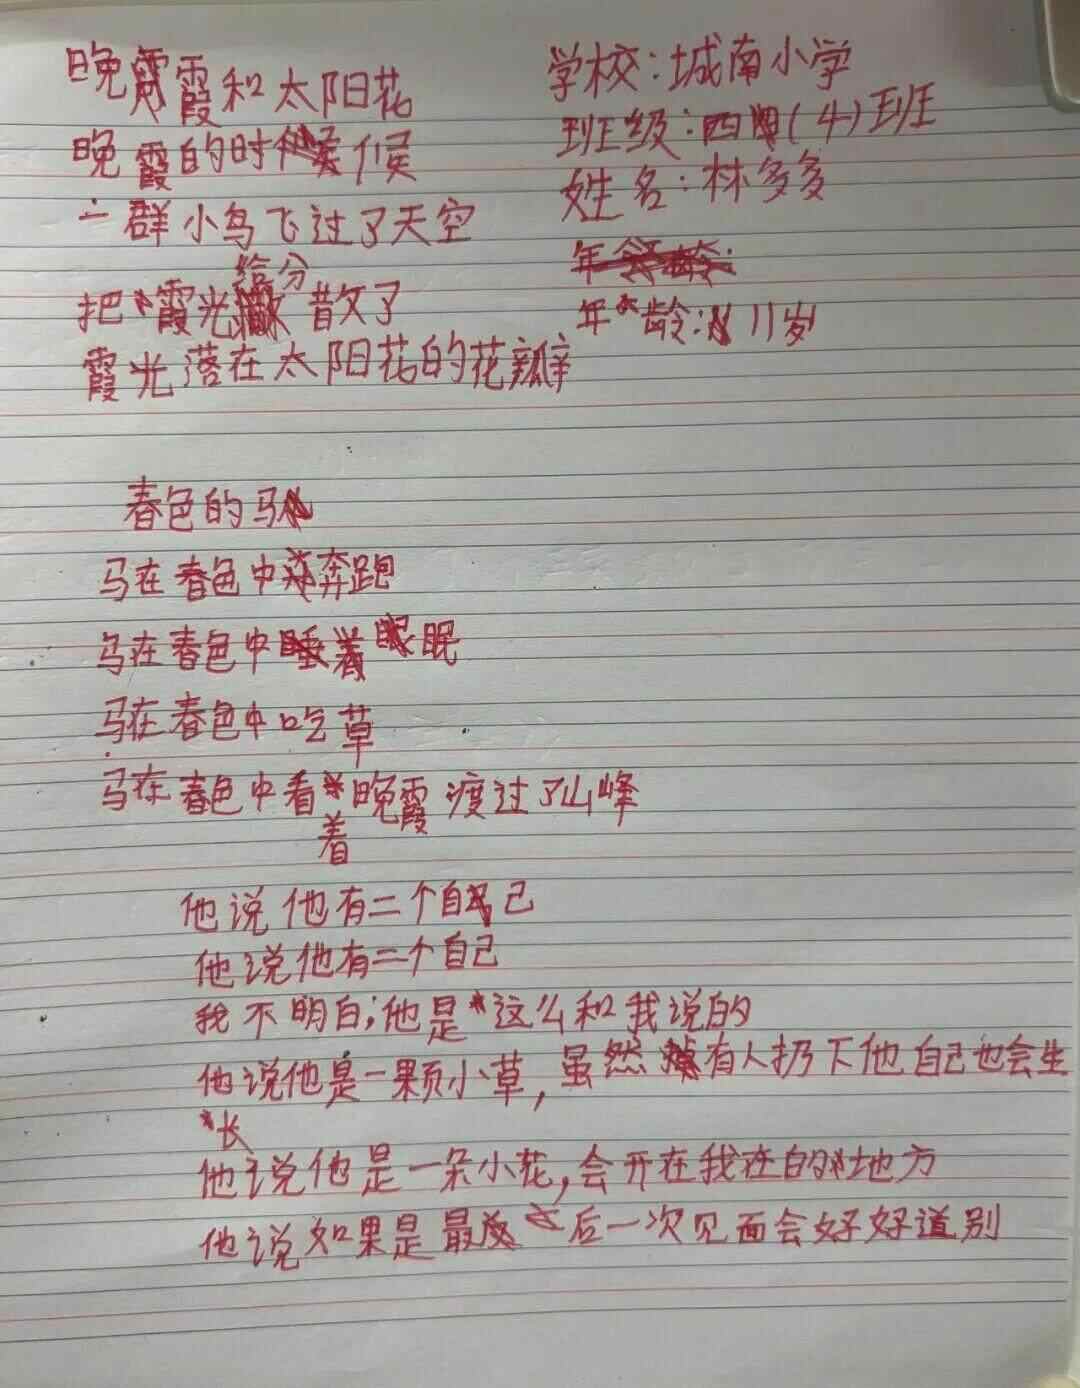 晚霞和太阳花
晚霞的时候
一群小鸟飞过了天空
把霞光给分散了
霞光落在太阳花的花瓣
学校：城南小学
班级：四（4）班
姓名：林多多
年龄：11岁
春色的马
马在春色中奔跑
马在春色中眠
马在春色中吃草
马在春色中看着晚霞渡过了山峰
他说他有二个自己
他说他有二个自己
我不明白；他是这么和我说的
他说他是一颗小草，虽然有人扔下他自己也会生
长
他说他是一朵小花，会开在我在的地方
他说如果是最后一次见面会好好道别